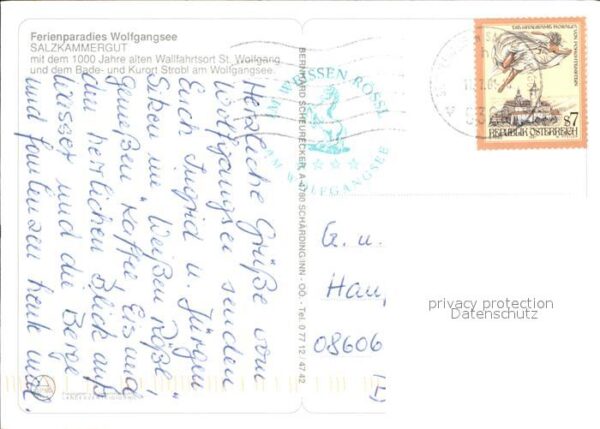 Ferienparadies Wolfgangsee
SALZKAMMERGUT
mit dem 1000 Jahre alten Wallfahrtsort St. Wolfgang
und dem Bade- und Kurort Strobl am Wolfgangsee.
Herzliche Grüße vom
Wolfgangsee senden
Euch Ingrid u. Jürgen
Sitzen im "Weißen Rößl",
genießen Kaffee Eis und
den herrlichen Blick auf
Wasser und die Berge
und faulenzen heute mal.
BERNHARD SCHEURECKER, A-4780 SCHÄRDING/INN - OÖ. - Tel. 0 77 12 / 47 42
IM WEISSEN RÖSSL
AM WOLFGANGSEE
S7
REPUBLIK ÖSTERREICH
G. u.
Han
08606
privacy protection
Datenschutz